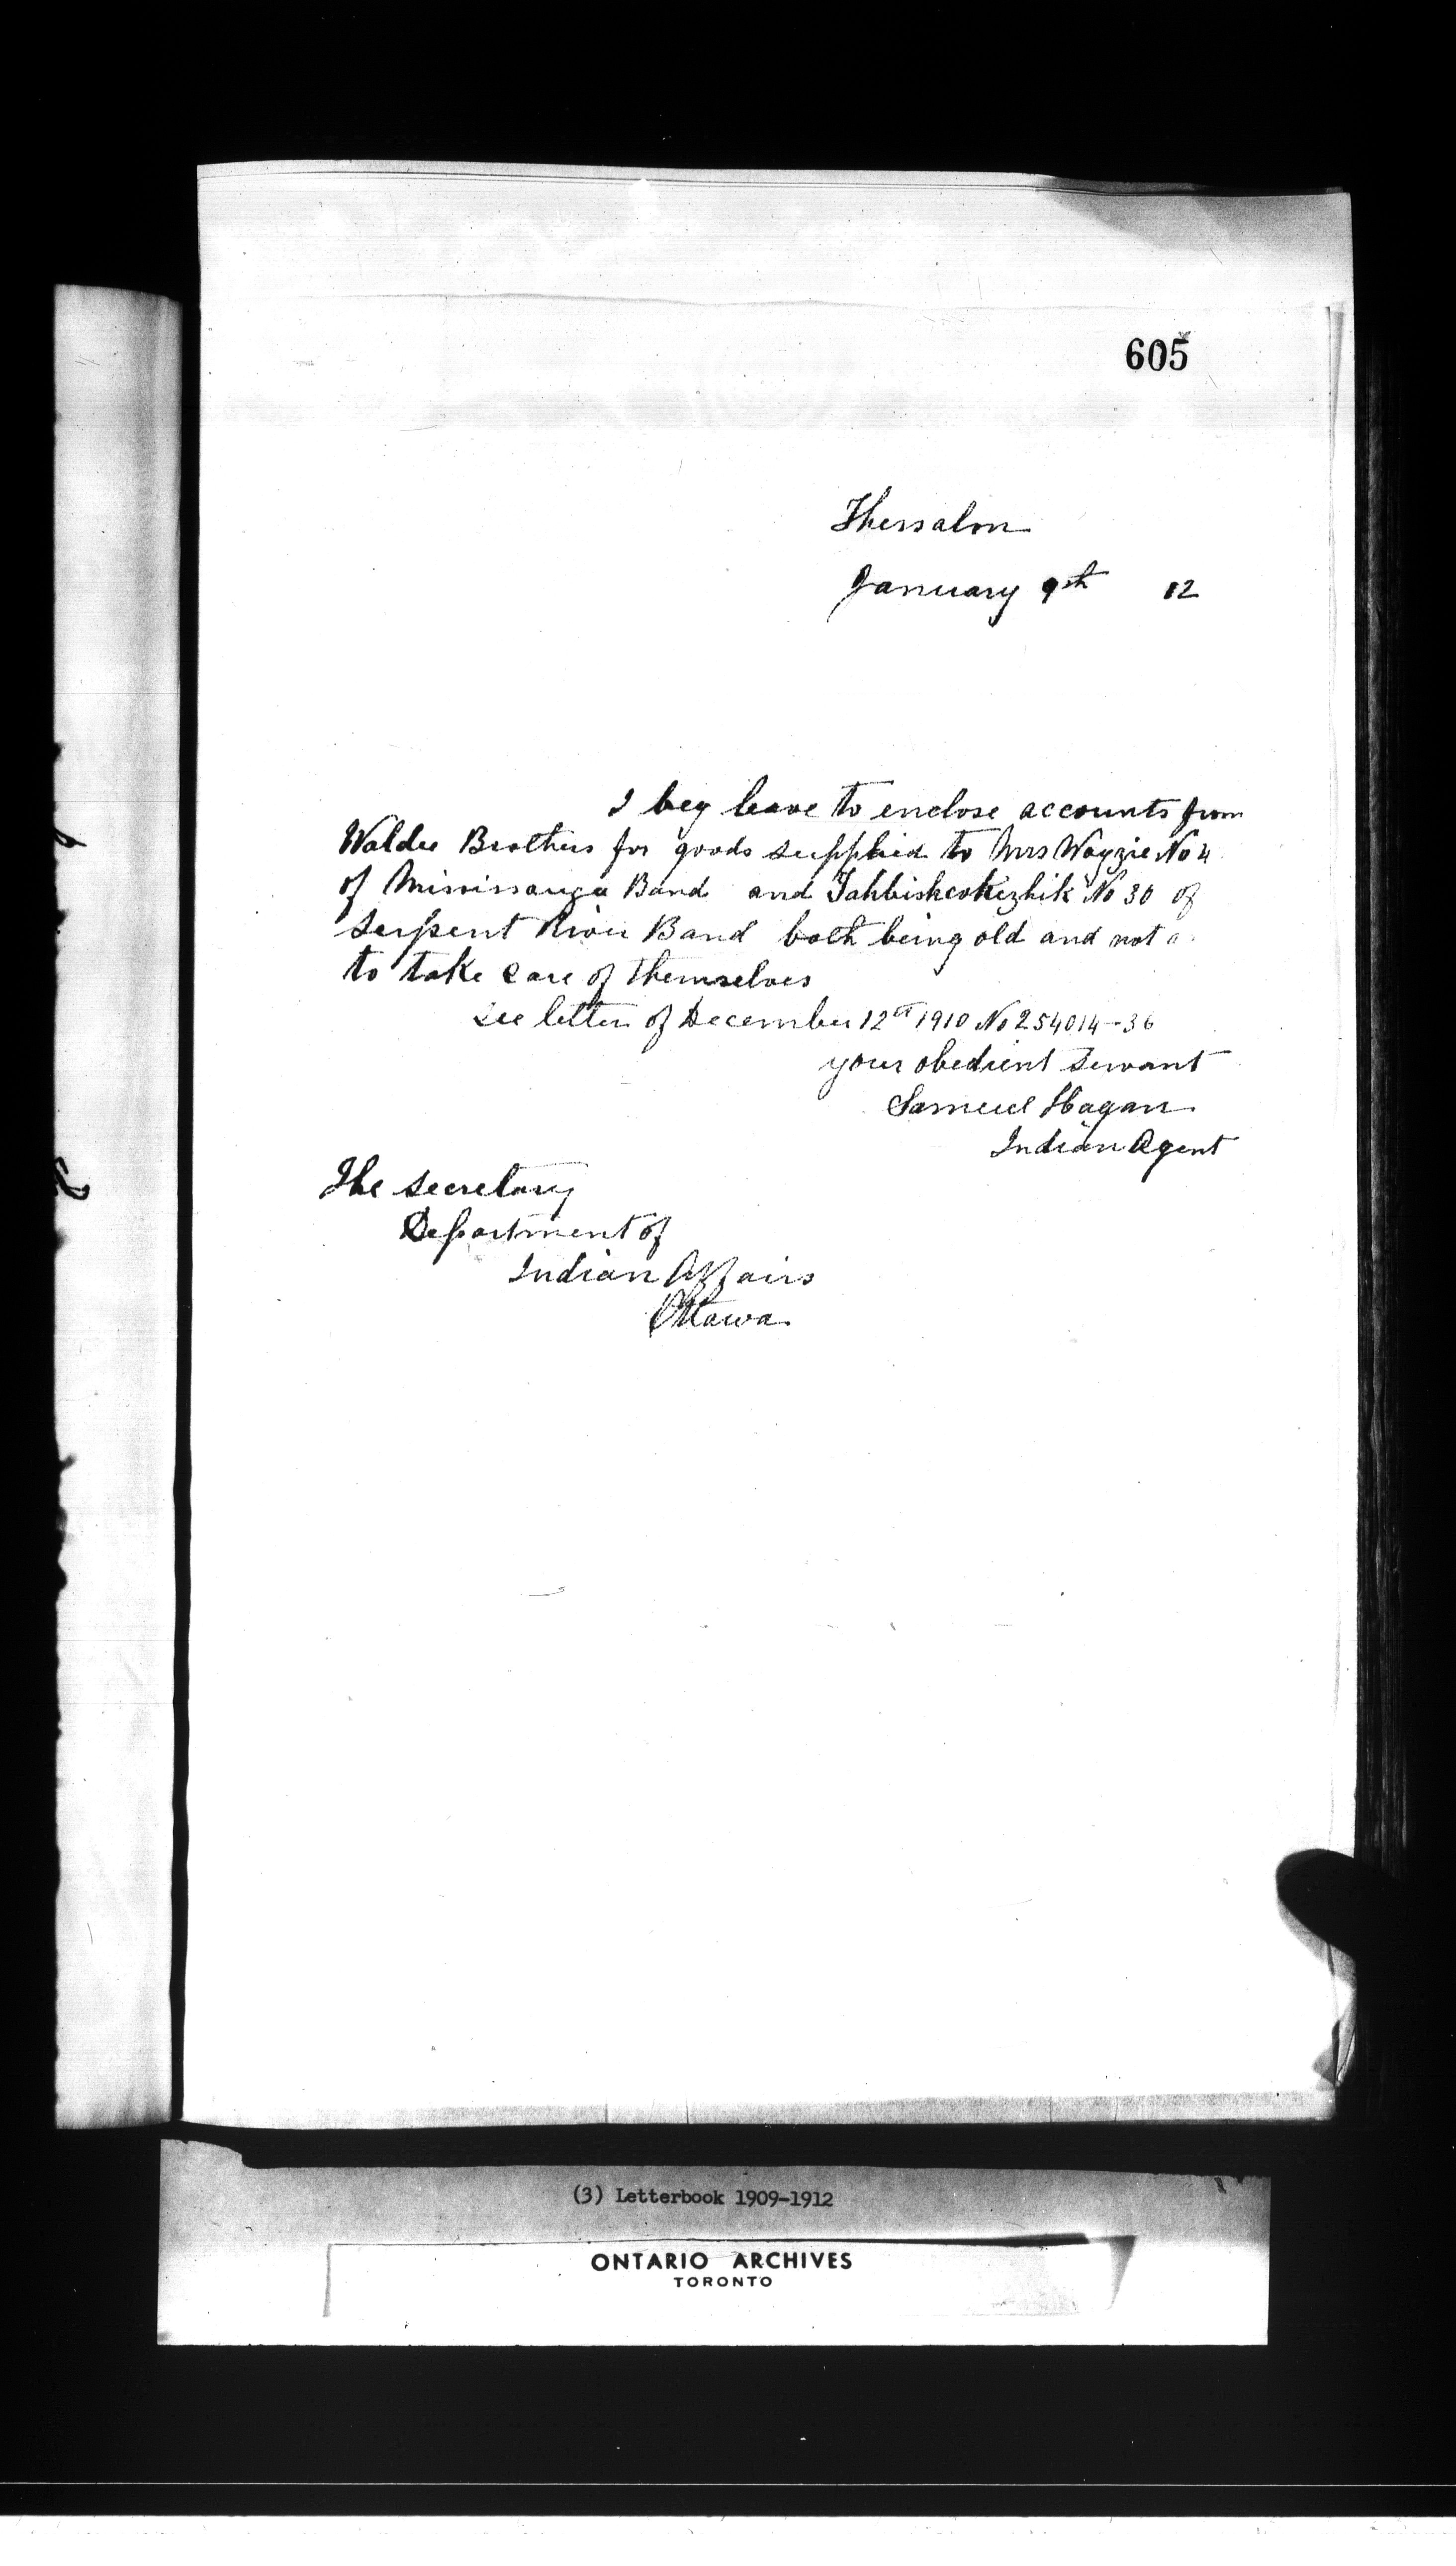 605
Thessalon
January 9th 12
I beg leave to enclose accounts from
Waldie Brothers for goods supplied to Mrs Wayzie No 4
of Mississauga Band and Tahbishcokezhik No 30 of
Serpent River Band both being old and not
to take care of themselves
See letter of December 12th 1910 No 254014-36
your obedient servant
Samuel Hagan
Indian Agent
The Secretary
Department of
Indian Affairs
Ottawa
(3) Letterbook 1909-1912
ONTARIO ARCHIVES
TORONTO